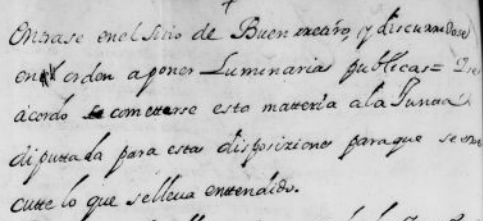 Entrase en el Sitio de Buen retiro, y discurridose
en orden a poner Luminarias publicas=
acordo cometterse esta matteria a la Juntta
diputtada para estas disposiziones para que se
cutte lo que se lleva enttendido.